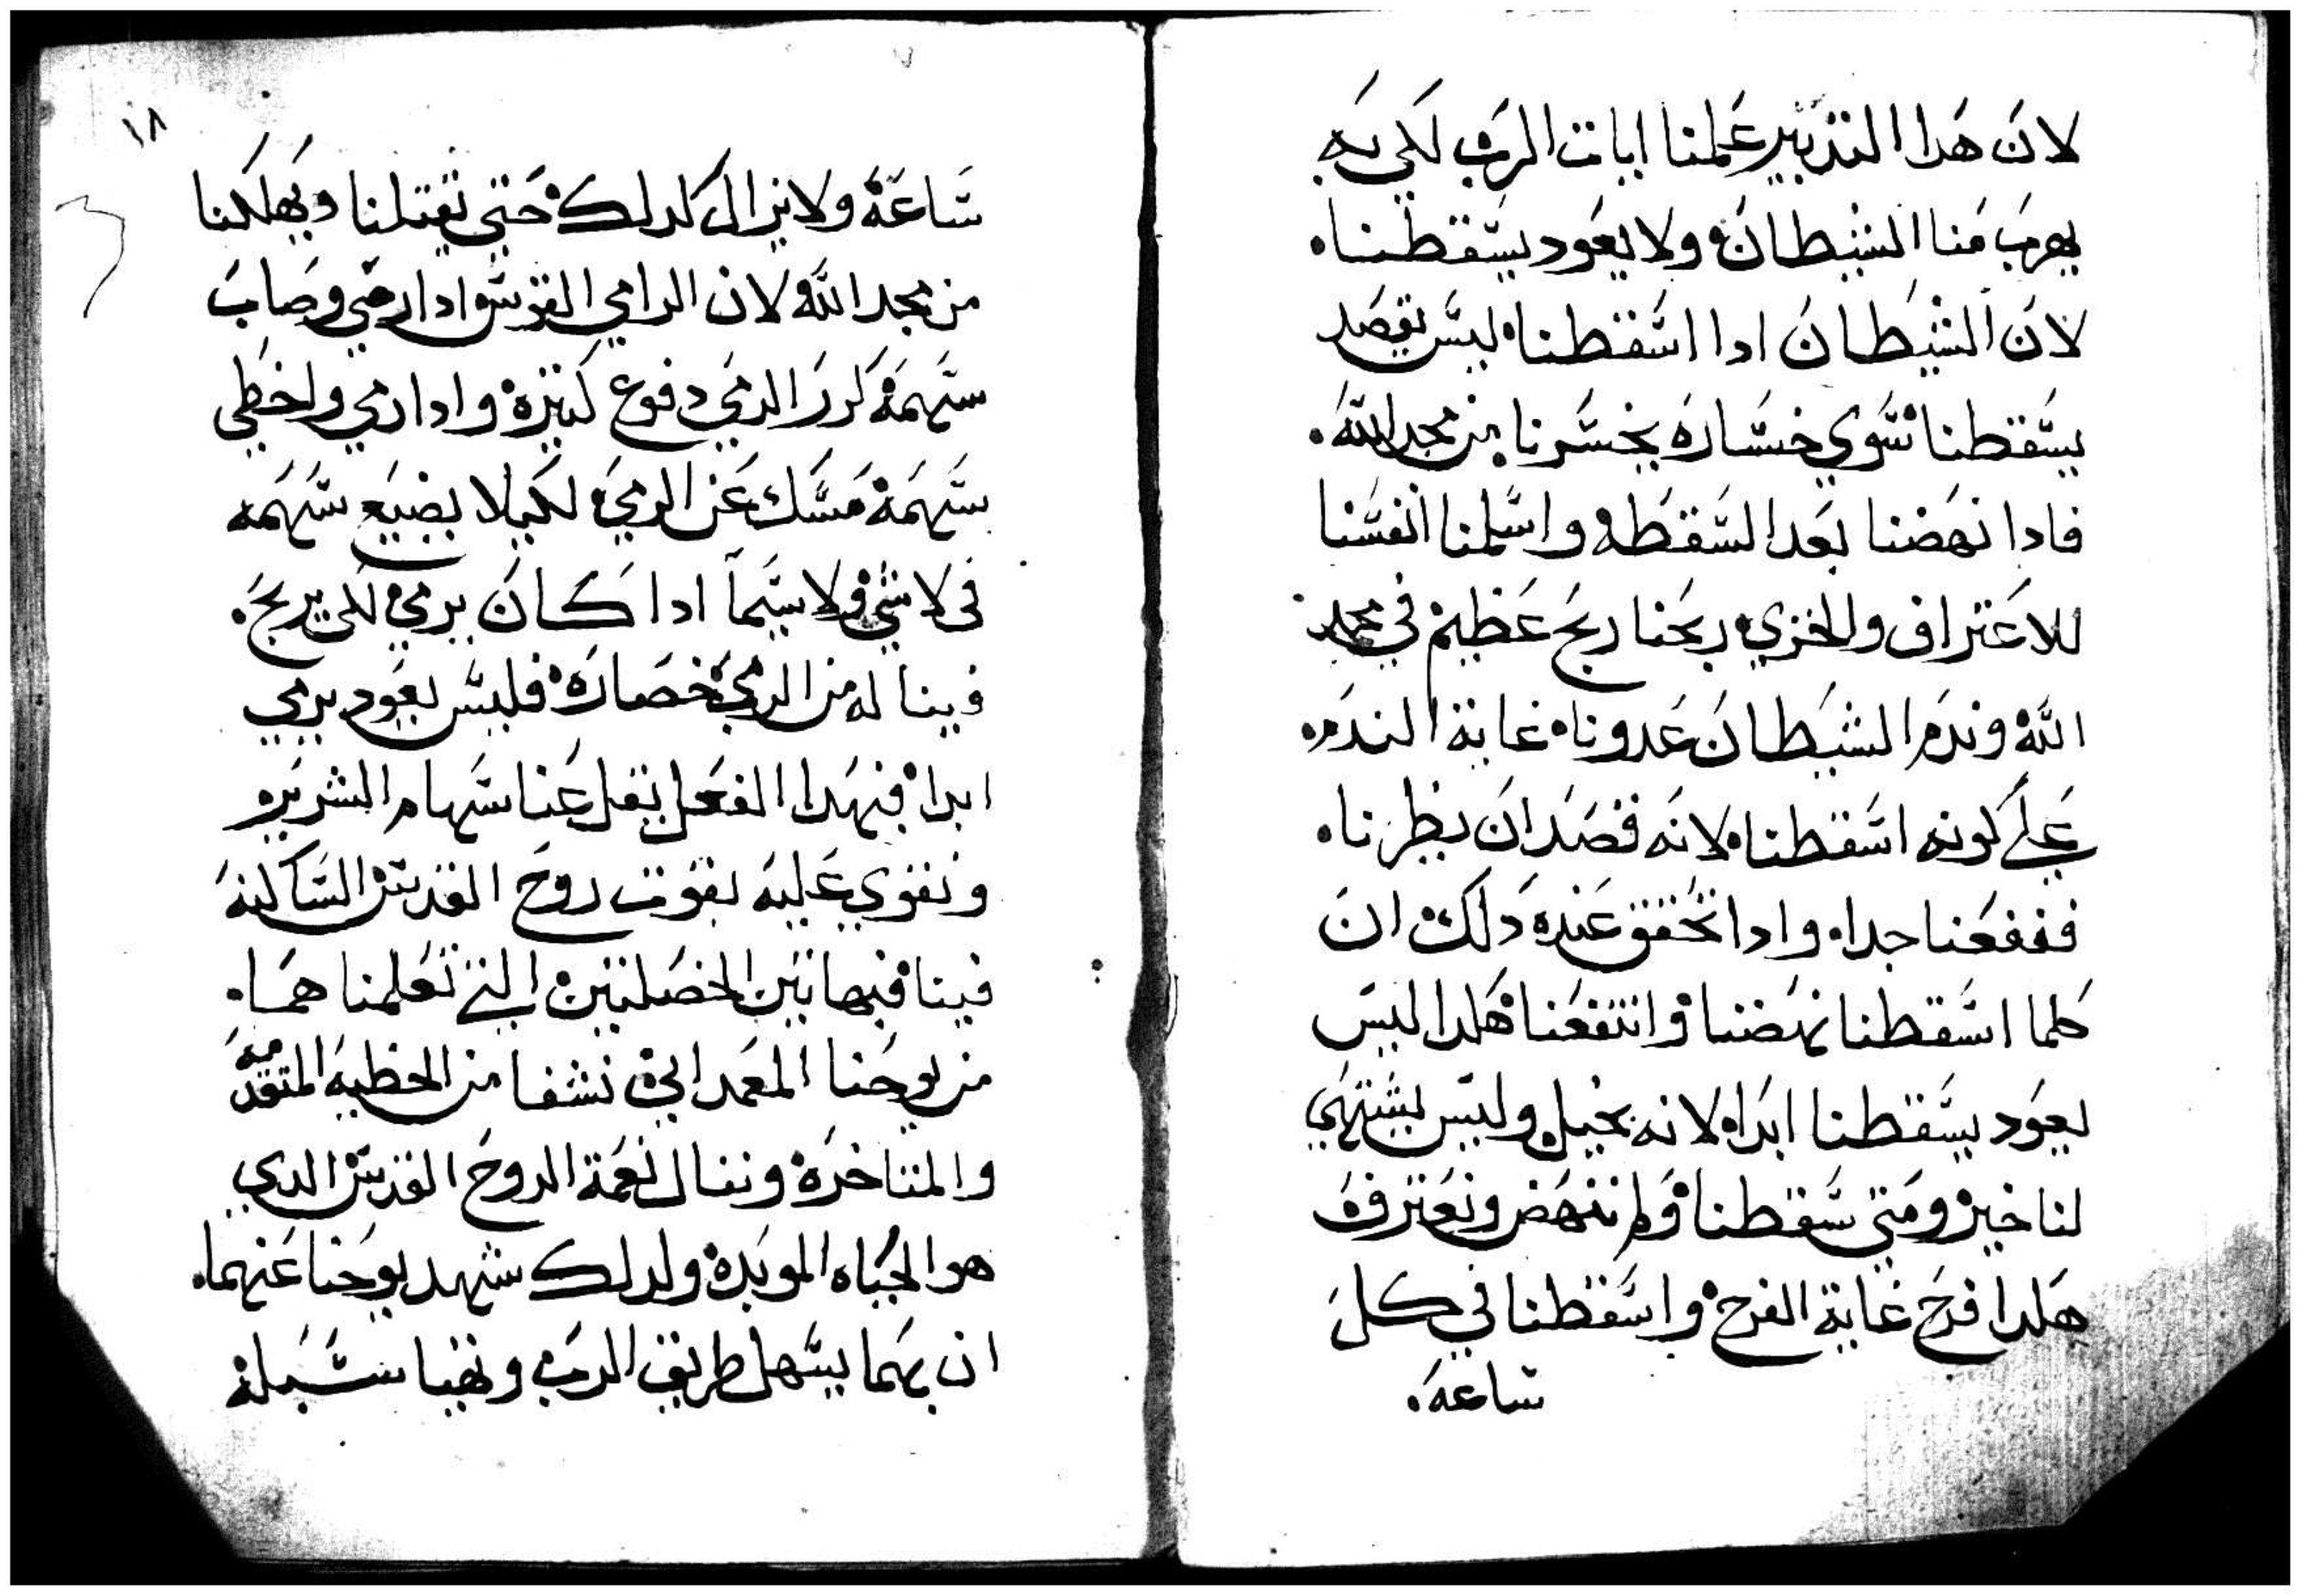 لان هدا التدبير علمنا ايات الرب لكي به
يهرب منا الشيطان ولا يعود يسقطنا.
لان الشيطان ادا اسقطنا ليس يقصد
يسقطنا سوي خساره يخسرنا من مجد الله.
فادا نهضنا بعد السقطه واسلمنا انفسنا
للاعتراف والخزي ربحنا ربح عظيم في مجد
الله وندم الشيطان عدونا غاية الندم.
علي كونه اسقطنا لانه قصد ان يظرنا.
فنفعنا جدا. وادا تحقق عنده دلك ان
كلما اسقطنا نهضنا وانتفعنا هكدا ليس
يعود يسقطنا ابدا لانه بخيل وليس يشتهي
لنا خير ومتي سقطنا ولم ننهض ونعترف
هكدا فرح غاية الفرح واسقطنا في كل
ساعه.
١٨
ساعة ولا يزال كدلك حتي يقتلنا ويهلكنا
من مجد الله ولان الرامي القوس ادا رمي وصاب
سهمه كرر الرمي دفوع كتيرة وادا رمي واخطي
سهمه مسك عن الرمي لكيلا يضيع سهمه
في لا شي ولا سيما ادا كان يرمي لكي يربح.
فيناله من الرمي خصاره فليس يعود يرمي
ابدا فبهدا الفعل تقل عنا سهام الشرير
ونقوي عليه بقوت روح القدس الساكنه
فينا فبهاتين الخصلتين التي تعلمنا هما.
من يوحنا المعمداني نشفا من الخطيه المتقدمه
والمتاخره وننال نعمة الروح القدس الدي
هو الحياه الموبده ولدلك شهد يوحنا عنهما.
ان بهما يسهل طريق الرب وتهيا سبله